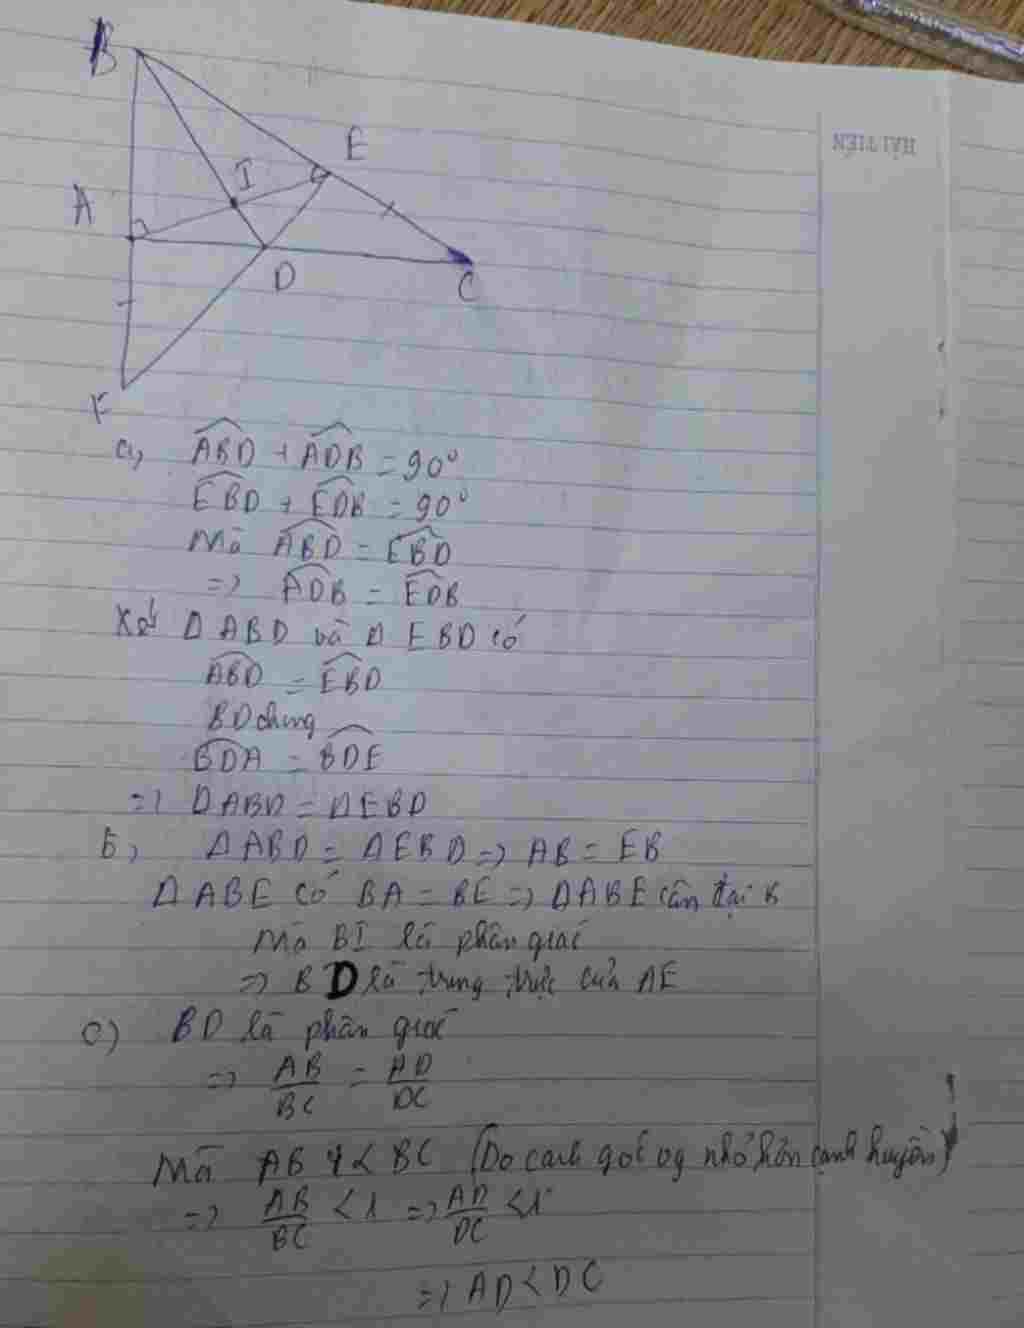 B
E
HẢI TIẾN
I
A
D
C
F
a, ABD + ADB = 90°
EBD + EDB = 90°
Mà ABD = EBD
=> ADB = EDB
Xét Δ ABD và Δ EBD có
ABD = EBD
BD chung
BDA = BDE
=> Δ ABD = Δ EBD
b, Δ ABD = Δ EBD => AB = EB
Δ ABE có BA = BE => Δ ABE cân tại B
Mà BI là phân giác
=> BD là trung trực của AE
c) BD là phân giác
=> AB/BC = AD/DC
Mà AB < BC (Do cạnh góc vg nhỏ hơn cạnh huyền)
=> AB/BC < 1 => AD/DC < 1
=> AD < DC